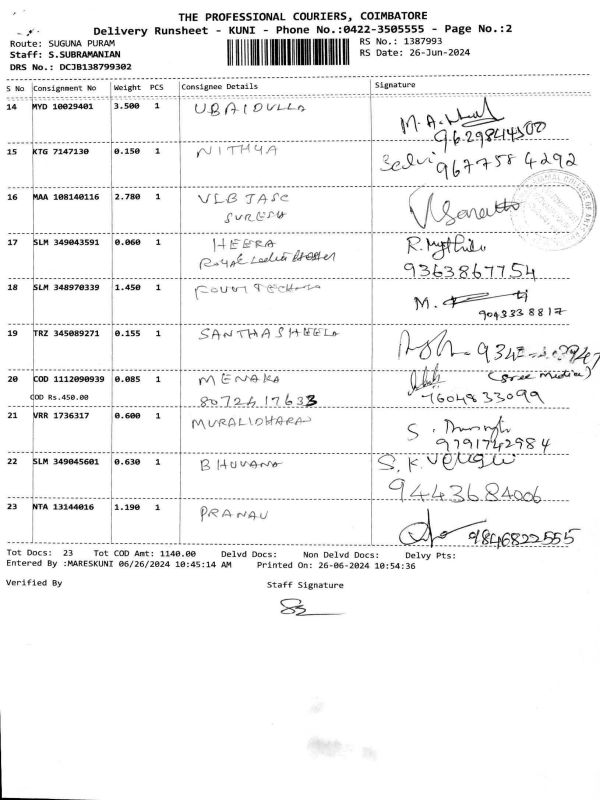 THE PROFESSIONAL COURIERS, COIMBATORE
Delivery Runsheet - KUNI - Phone No.:0422-3505555 - Page No.:2
Route: SUGUNA PURAM RS No.: 1387993
Staff: S.SUBRAMANIAN RS Date: 26-Jun-2024
DRS No.: DCJB138799302
S No Consignment No Weight PCS Consignee Details Signature
14 MYD 10029401 3.500 1 UBAIDULLA
M. A.
9629844500
15 KTG 7147130 0.150 1 NITHYA
9677584292
16 MAA 108140116 2.780 1 VLB JASC
SURESH
17 SLM 349043591 0.060 1 HEERA R. Mythili
Royal
9363867754
18 SLM 348970339 1.450 1 M.
9043338817
19 TRZ 345089271 0.155 1 SANTHASHEELA
20 COD 1112090939 0.085 1 MENAKA (Sree Medical)
COD Rs.450.00 8072617633 7604833099
21 VRR 1736317 0.600 1 MURALIDHARAN S.
9791742984
22 SLM 349045601 0.630 1 BHUVANA S.K.
9443684006
23 NTA 13144016 1.190 1 PRANAV
9846822555
Tot Docs: 23 Tot COD Amt: 1140.00 Delvd Docs: Non Delvd Docs: Delvy Pts:
Entered By :MARESKUNI 06/26/2024 10:45:14 AM Printed On: 26-06-2024 10:54:36
Verified By Staff Signature